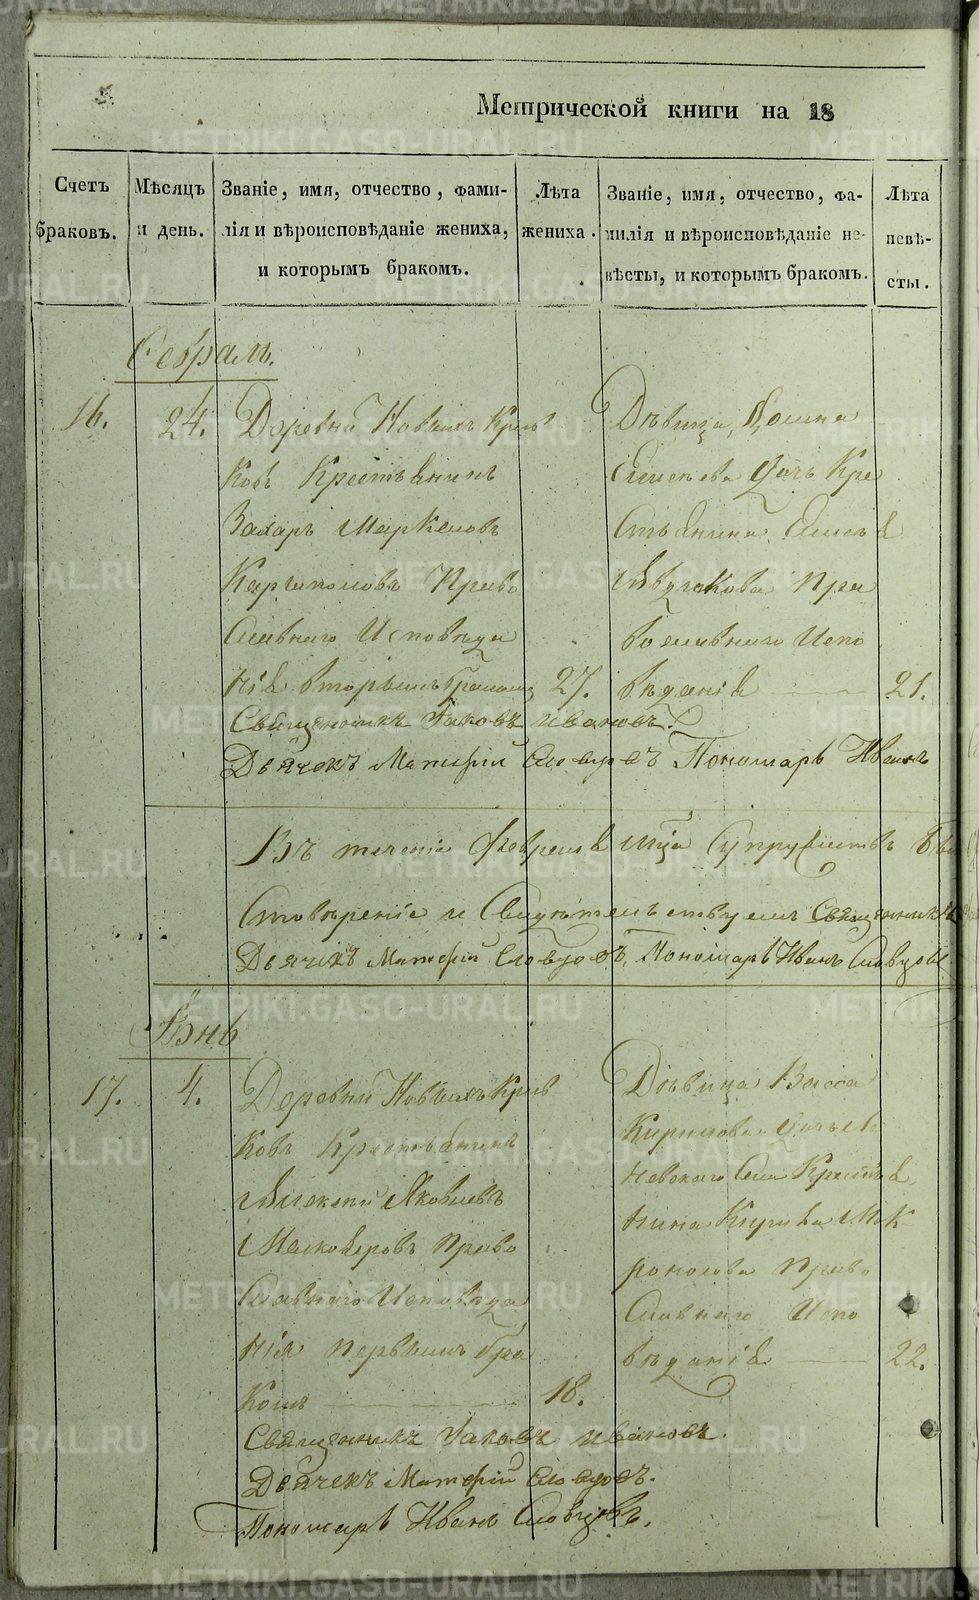 Метрической книги на 18
Счетъ браковъ.
Мѣсяцъ и день.
Званіе, имя, отчество, фами-
лія и вѣроисповѣданіе жениха,
и которымъ бракомъ.
Лѣта жениха.
Званіе, имя, отчество, фа-
милія и вѣроисповѣданіе не-
вѣсты, и которымъ бракомъ.
Лѣта невѣ-
сты.
Февраль.
16. 24.
Деревни Новыхъ Крив
ковъ Крестьянинъ
Захаръ Маркеловъ
Каргаполовъ Право
славнаго Исповѣда
нія вторымъ бракомъ 27.
Дѣвица Домна
Елисѣева дочь Кре
стьянина Елисѣя
Православнаго Испо
вѣданія 21.
Священникъ Іаковъ Ивановъ.
Дьячекъ Матфій Словцовъ Пономарь Иванъ
Въ теченіи Февраля мца Супружествъ
и Свидѣтельствуемъ Священникъ
Дьячекъ Матфій Словцовъ, Пономарь Иванъ Словцовъ
Іюнь
17. 4.
Деревни Новыхъ Крив
ковъ Крестьянинъ
Алексѣй Яковлевъ
Право
славнаго Исповѣда
нія первымъ бра
комъ 18.
Дѣвица Васса
Кирилова дочь
Невскаго Села Крестья
нина Кирила Мок
роносова Право
славнаго Испо
вѣданія 22.
Священникъ Іаковъ Ивановъ.
Дьячекъ Матфій Словцовъ.
Пономарь Иванъ Словцовъ.
METRIKI.GASO-URAL.RU